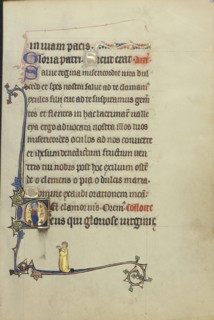 in viam pacis.
Gloria patri. Sicut erat. ant
Salve regina misericordie vita dul
cedo et spes nostra salve ad te clamam
exules filii eve ad te suspiramus gem
tes et flentes in hac lacrimarum valle
eya ergo advocata nostra illos tuos
misericordes oculos ad nos converte
et ihesum benedictum fructum ven
tris tui nobis post hoc exilium oste
de o clemens o pia o dulcis maria
domine exaudi orationem meam
Et clamor meus. Oremus. Collecte
Deus qui gloriose virginis